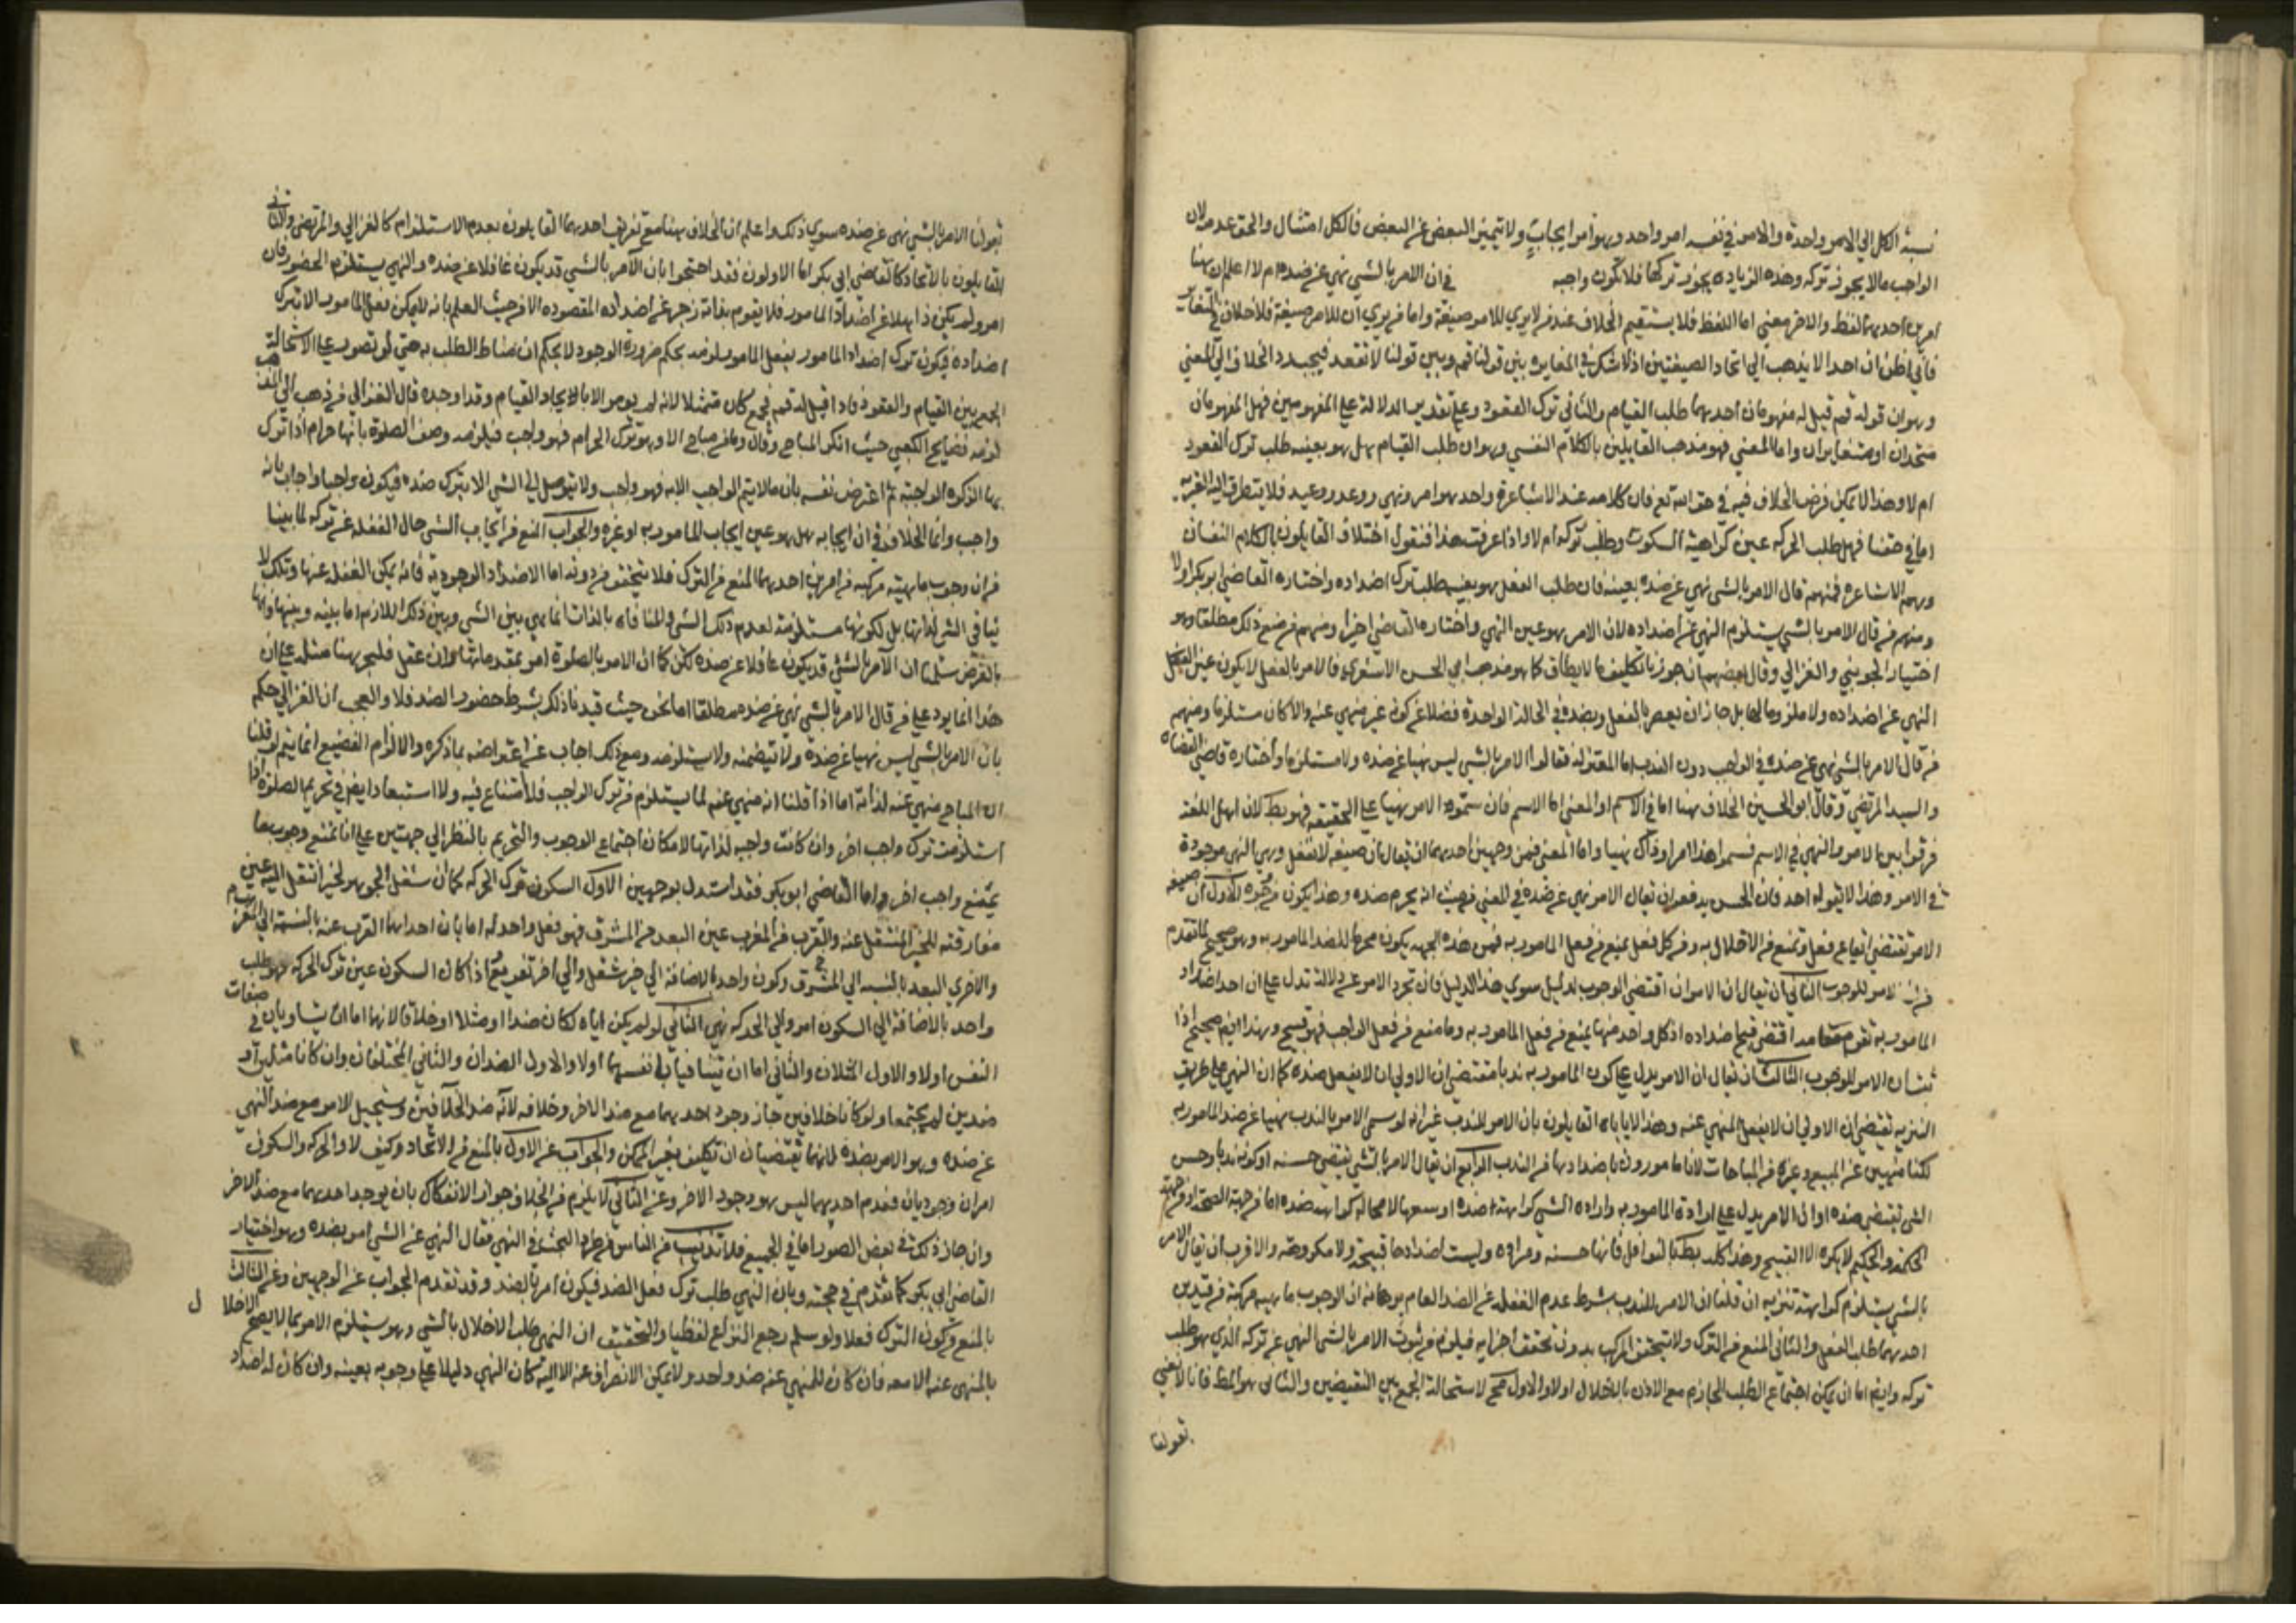 نسبة الكل الي الامر واحدة والامر في نفسه امر واحد وهو امر ايجاب ولا تتميز البعض عن البعض فالكل امتثال والحق عدمه لان
الواجب ما لا يجوز تركه وهذه الزيادة يجوز تركها فلا تكون واجبه في ان الامر بالشي نهي عن ضده ام لا اعلم ان هنا
امرين احدهما لفظ والاخر معني اما اللفظ فلا يستقيم الخلاف عند من لا يري للامر صيغة واما من يري ان للامر صيغة فلا خلاف في
فاني اظن ان احدا لا يذهب الي اتحاد الصيغتين اذ لا شك في المغايرة بين قولنا قم وبين قولنا لا تقعد فيجب رد الخلاف الي المعني
وهو ان قوله قم قيل له مفهومان احدهما طلب القيام والثاني ترك القعود وعلي تقدير الدلالة علي المفهومين فهل المفهومان
متحدان او متغايران واما المعني فهو مذهب القايلين بالكلام النفسي وهو ان طلب القيام هل هو بعينه طلب ترك القعود
ام لا وهذا لا يمكن فرض الخلاف فيه في حق الله تع فان كلامه عند الاشاعرة واحد هو امر ونهي ووعد ووعيد فلا يتطرق اليه الغيرية
اما في حقنا فهل طلب الحركه عين كراهية السكون وطلب تركه ام لا واذا عرفت هذا فنقول اختلاف القايلون بالكلام النفسان
وهم الاشاعرة فمنهم قال الامر بالشي نهي عن ضده بعينه فان طلب الفعل هو بعينه طلب ترك اضداده واختاره القاضي ابو بكر اولا
ومنهم من قال الامر بالشي يستلزم النهي عن اضداده لان الامر هو عين النهي واختاره القاضي اخيرا ومنهم من منع ذلك مطلقا وهو
اختيار الجويني والغزالي وقال بعضهم ان جوزنا تكليف ما لا يطاق كما هو مذهب ابي الحسن الاشعري فالامر بالفعل لا يكون عين
النهي عن اضداده ولا ملزوما لها بل جاز ان يعمر بالفعل وبضده في الحالة الواحدة فضلا عن كونه غير منهي عنه والا كان مستلزما ومنهم
من قال الامر بالشي نهي عن ضده في الواجب دون الندب اما المعتزلة فقالوا الامر بالشي ليس نهيا عن ضده ولا مستلزما واختاره قاضي القضاه
والسيد المرتضي وقال ابو الحسين الخلاف هنا اما في الاسم او المعني اما الاسم فان سموه الامر نهيا علي الحقيقة فهو بط لان اهل اللغة
فرقوا بين الامر والنهي في الاسم فسموا هذا امرا وذاك نهيا واما المعني فمن وجهين احدهما ان يقال ان صيغة لا تفعل وهي النهي موجودة
في الامر وهذا لا يقوله احد فان الحس يدفعه وان يقال الامر نهي عن ضده في المعني من حيث انه يحرم ضده وهذا يكون من وجوه الاول ان صيغة
الامر تقتضي ايقاع فعل وتمنع من الاخلال به ومن كل فعل يمنع من فعل المامور به فمن هذه الجهه يكون محرما للضد المامور به وهو صحيح لما تقدم
للوجوب الثاني ان يقال ان الامر ان اقتضي الوجوب لدليل سوي هذا الدليل فان تجرد الامر عن دلالة تدل علي ان احد اضداد
المامور به تقوم مقامه اقتضي قبح اضداده اذ كل واحد منها يمنع من فعل المامور به وما منع من فعل الواجب فهو قبيح وهذا ايض صحيح اذا
ثبت ان الامر للوجوب الثالث ان يقال ان الامر يدل علي كون المامور به ندبا فتقتضي ان الاولي ان لا يفعل ضده كما ان النهي علي طريق
التنزيه تقتضي ان الاولي ان لا يفعل المنهي عنه وهذا لا ياباه القايلون بان الامر للندب غير انه لو سمي الامر بالندب نهيا عن ضد المامور به
لكنا منهيين عن البيع وغيره من المباحات لانا مامورون باضدادها من الندب الرابع ان يقال الامر بالشي يقتضي حسنه او كونه ندبا وحسن
الشي تقتضي ضده او ان الامر يدل علي ارادة المامور به وارادة الشي كراهة ضده او يتبعها لا محالة كراهه ضده اما من جهة الصحة او من جهة
الحكمة والحكيم لا يكره الا القبيح وهذا كله بط بالنوافل فانها حسنه ومرادة وليست اضدادها قبيحة ولا مكروهة والاقرب ان يقال الامر
بالشي يستلزم كراهته تنزيه ان قلنا ان الامر للندب بشرط عدم الغفله عن الضد العام برهانه ان الوجوب ماهية مركبة من قيدين
احدهما طلب الفعل والثاني المنع من الترك ولا يتحقق المركب بدون تحقق اجزايه فيلزم من ثبوت الامر بالشي النهي عن تركه الذي هو طلب
تركه وايض اما ان يمكن اجتماع الطلب الجازم مع الاذن بالاخلال اولا والاول مح لاستحالة الجمع بين النقيضين والثاني هو المط فانا لا نعني
بقولنا
بقولنا الامر بالشي نهي عن ضده سوي ذلك واعلم ان الخلاف هنا مع فريقين احدهما القايلون بعدم الاستلزام كالغزالي والمرتضي والثاني
القايلون بالاتحاد كالقاضي ابي بكر اما الاولون فقد احتجوا بان الآمر بالشي قد يكون غافلا عن ضده والنهي يستلزم الحضور فان
امر ولم يكن ذاهلا عن اضداد المامور فلا يقوم بذاته زجر عن اضداده المقصوده الا من حيث العلم بانه لا يمكن فعل المامور الا بترك
اضداده فيكون ترك اضداد المامور بفعل المامور لزمه بحكم ضرورة الوجود لا بحكم ان مناط الطلب به حتي لو تصور علي الاستحالة
الجمع بين القيام والقعود فاذا قيل له قم فجمع كان ممتثلا لانه لم يومر الا بايجاد القيام وقد اوجده قال الغزالي من ذهب الي هذا المذهب
لزمه فضايح الكعبي حيث انكر المباح وقال وما من مباح الا وهو ترك الحرام فهو واجب فيلزمه وصف الصلوة بانها حرام اذا ترك
بها الزكوة الواجبة ثم اعترض نفسه بان ما لا يتم الواجب الا به فهو واجب ولا يتوصل الي الشي الا بترك ضده فيكون واجبا واجاب بانه
واجب وانما الخلاف في ان ايجابه هل هو عين ايجاب المامور به او غيره والجواب المنع من ايجاب الشي حال الغفله عن تركه لما بينا
من ان وجوب ماهيته مركبه من امرين احدهما المنع من الترك فلا يتحقق من دونه اما الاضداد الوجوديه فانه يمكن الغفله عنها وتلك لا
ينافي الشي لذاتها بل لكونها مستلزمة لعدم ذلك الشي والمنافاه بالذات انما هي بين الشي وبين ذلك اللازم اما بينه وبينها فانها
بالعرض سلمنا ان الآمر بالشي قد يكون غافلا عن ضده لكن كما ان الامر بالصلوة امر بمقدماتها وان غفل فليجز هنا مثله علي ان
هذا انما يرد علي من قال الامر بالشي نهي عن ضده مطلقا اما نحن حيث قيدنا ذلك بشرط حضور الضد فلا والعجب ان الغزالي حكم
بان الامر بالشي ليس نهيا عن ضده ولا يتضمنه ولا يستلزمه ومع ذلك اجاب عن اعتراضه بما ذكره والالزام الفضيع انما يتم لو قلنا
ان المباح منهي عنه لذاته اما اذا قلنا انه منهي عنه لما يستلزم من ترك الواجب فلا امتناع فيه ولا استبعاد ايض في تحريم الصلوة اذا
استلزمت ترك واجب اخر وان كانت واجبه لذاتها لامكان اجتماع الوجوب والتحريم بالنظر الي جهتين علي انا نمنع وجوب ما
يمنع واجب اخر واما القاضي ابو بكر فقد استدل بوجهين الاول السكون ترك الحركه كما ان شغل الجوهر لحيز انتقل اليه عين
مفارقته للحيز المنتقل عنه والقرب من المغرب عين البعد من المشرق فهو فعل واحد له
والاخري البعد بالنسبه الي المشرق وكون واحد بالاضافة الي حيز شغل والي اخر تفريغ اذا كان السكون عين ترك الحركه فهو طلب
واحد بالاضافة الي السكون امر والي الحركه نهي الثاني لو لم يكن اياه لكان ضدا او مثلا او خلافا لانهما اما ان يتساويا في صفات
النفس اولا والاول المثلان والثاني اما ان يتنافيا في نفسهما اولا والاول الضدان والثاني المختلفان وان كانا مثلين او
ضدين لم يجتمعا ولو كانا خلافين جاز وجود احدهما مع ضد الاخر وخلافه لانه ضد الخلافين ويستحيل الامر مع ضد النهي
عن ضده وهو الامر بضده لانهما نقيضان او تكليف بغير الممكن والجواب عن الاول بالمنع من الاتحاد وكيف لا والحركه والسكون
امران وجوديان فعدم احدهما ليس هو وجود الاخر وعن الثاني لا يلزم من الخلاف جواز الانفكاك بان يوجد احدهما مع ضد الاخر
وان جاز ذلك في بعض الصور اما في الجميع فلا تذنيب من الناس من طرد البحث في النهي فقال النهي عن الشي امر بضده وهو اختيار
القاضي ابي بكر كما تقدم في حجته وبان النهي طلب ترك فعل الضد فيكون امرا بالضد وقد تقدم الجواب عن الوجهين وعن الثالث
بالمنع وكون الترك فعلا ولو سلم رجع النزاع لفظيا والتحقيق ان النهي طلب الاخلال بالشي وهو يستلزم الامر بما لا يصح الاخلال
بالمنهي عنه الا معه فان كان للمنهي عنه ضد واحد ولا يمكن الانصراف عنه الا اليه كان النهي دليلا علي وجوبه بعينه وان كان له اضداد